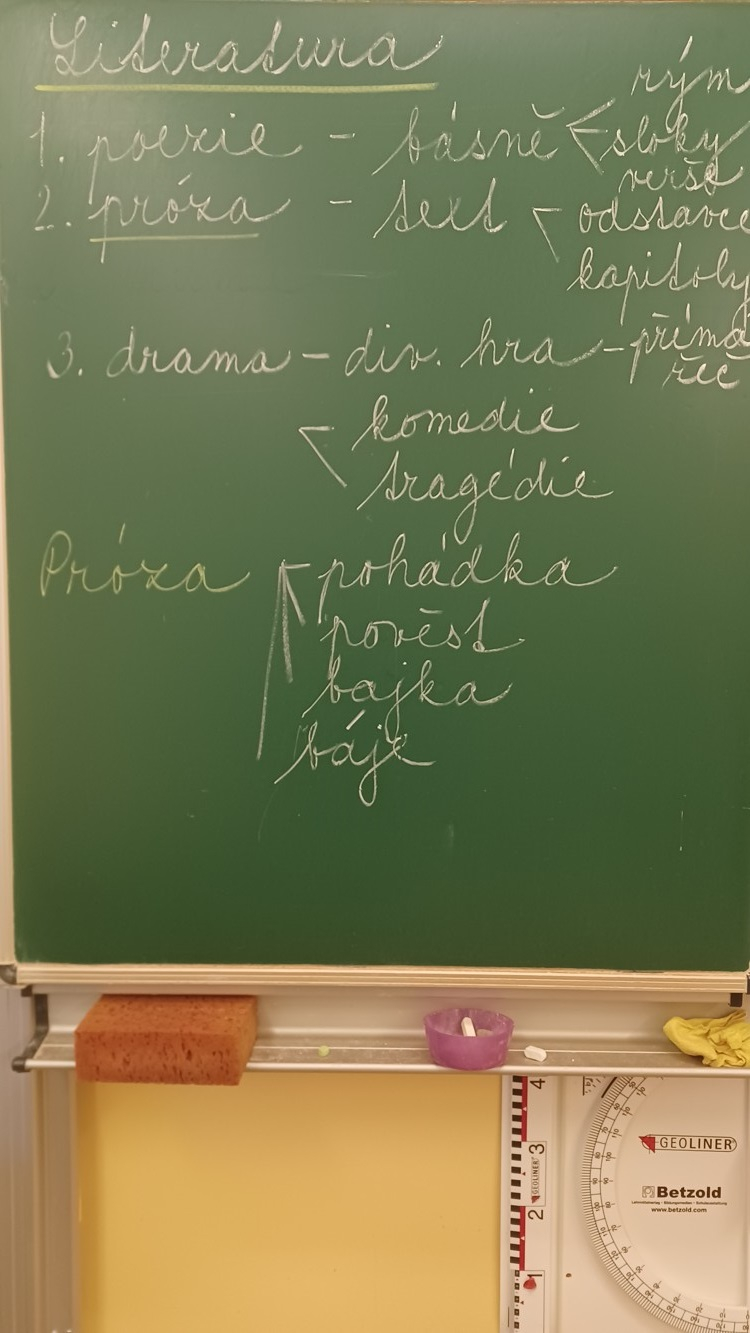 Literatura
rým
1. poezie - básně < sloky
verše
2. próza - text < odstavce
kapitoly
3. drama - div. hra - přímá
řeč
komedie
tragédie
Próza pohádka
pověst
bajka
báje
4
3
GEOLINER
2
1
GEOLINER
Betzold
www.betzold.com